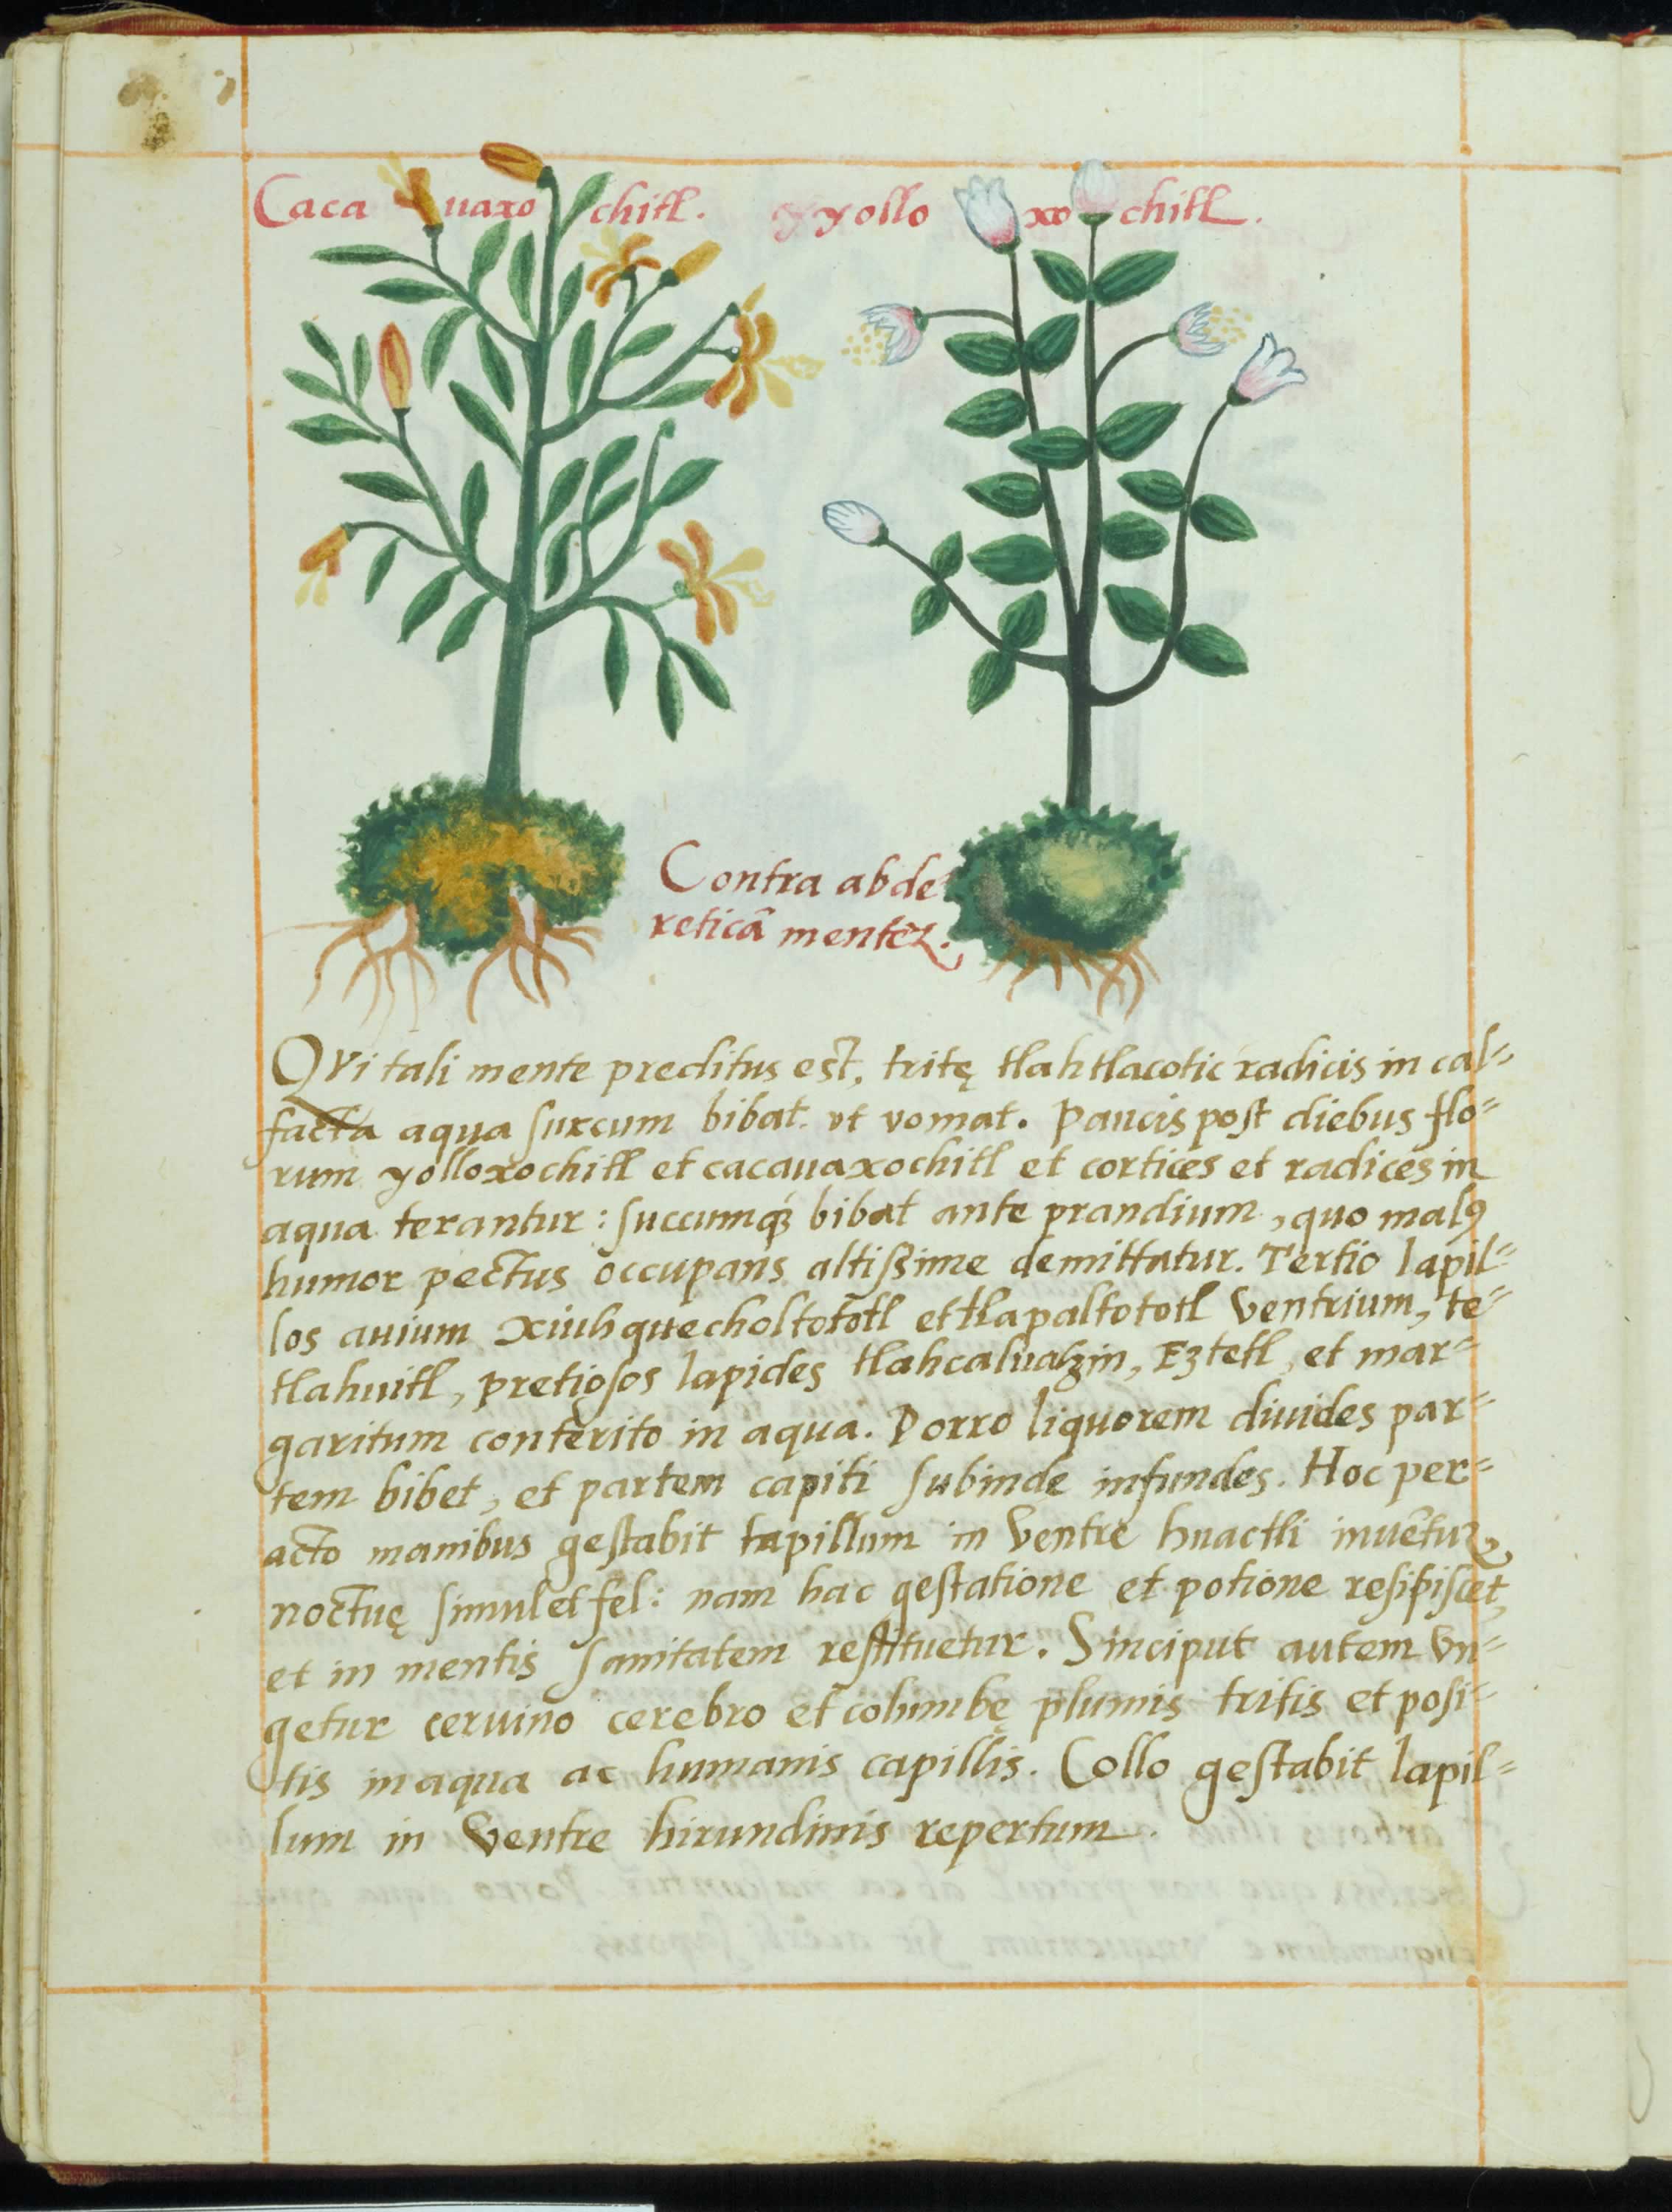 Cacauaxochitl. yyolloxochitl.
Contra abde=
reticā mentē.
QVi tali mente preditus est, tritę tlahtlacotic radicis in cal=
facta aqua succum bibat. vt vomat. Paucis post diebus flo=
rum yolloxochitl et cacauaxochitl et cortices et radices in
aqua terantur: succumq́ꝫ bibat ante prandium, quo malꝰ
humor pectus occupans altissime demittatur. Tertio lapil=
los auium xiuhquecholtototl et tlapaltototl ventrium, te=
tlahuitl, pretiosos lapides tlahcalhuatzin, Eztetl, et mar=
garitum conterito in aqua. Porro liquorem diuides par=
tem bibet, et partem capiti subinde infundes. Hoc per=
acto manibus gestabit lapillum in ventre huactli inuētū,
noctuę simul et fel: nam hac gestatione et potione resipiscet,
et in mentis sanitatem restituetur. Sinciput autem vn=
getur ceruino cerebro et columbę plumis tritis et posi=
tis in aqua ac humanis capillis. Collo gestabit lapil=
lum in ventre hirundinis repertum.